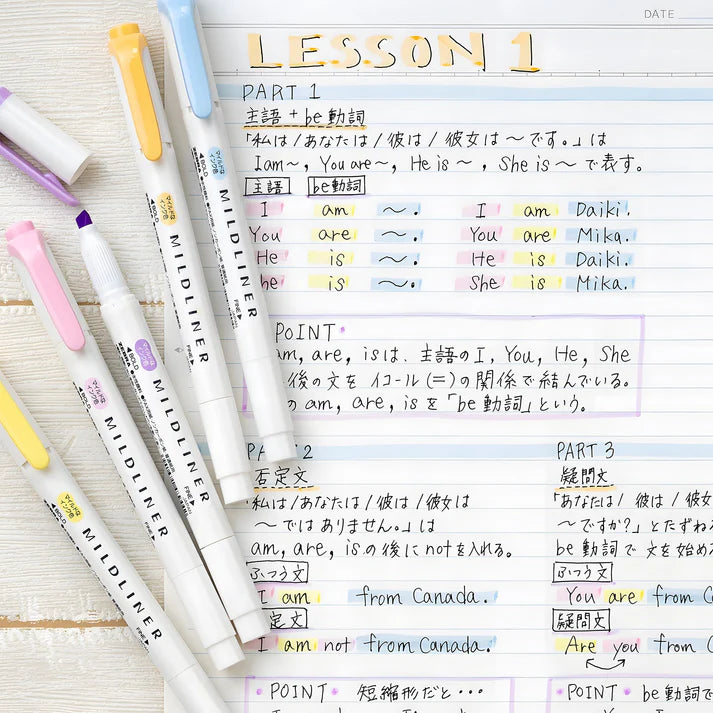 DATE
LESSON 1
PART 1
主語 + be動詞
「私は/あなたは/彼は/彼女は〜です。」は
I am〜, You are〜, He is〜, She is〜 で表す。
主語 be動詞
I am 〜. I am Daiki.
You are 〜. You are Mika.
He is 〜. He is Daiki.
he is 〜. She is Mika.
POINT
am, are, isは、主語のI, You, He, She
後の文をイコール(=)の関係で結んでいる。
の am, are, isを「be動詞」という。
PART 2
否定文
私は/あなたは/彼は/彼女は
〜ではありません。」は
am, are, isの後にnotを入れる。
ふつう文
I am from Canada.
定文
I am not from Canada.
POINT 短縮形だと・・・
PART 3
疑問文
「あなたは/彼は/彼
〜ですか?」とたずね
be動詞で文を始め
ふつう文
You are from
疑問文
Are you from
POINT be動詞で
MILDLINER
マイルドなインク色
BOLD
FINE
MILDLINER
マイルドなインク色
BOLD
FINE
MILDLINER
マイルドなインク色
BOLD
ZEBRA
FINE
MILDLINER
マイルドなインク色
BOLD
FINE
MILDLINER
マイルドなインク色
BOLD
FINE